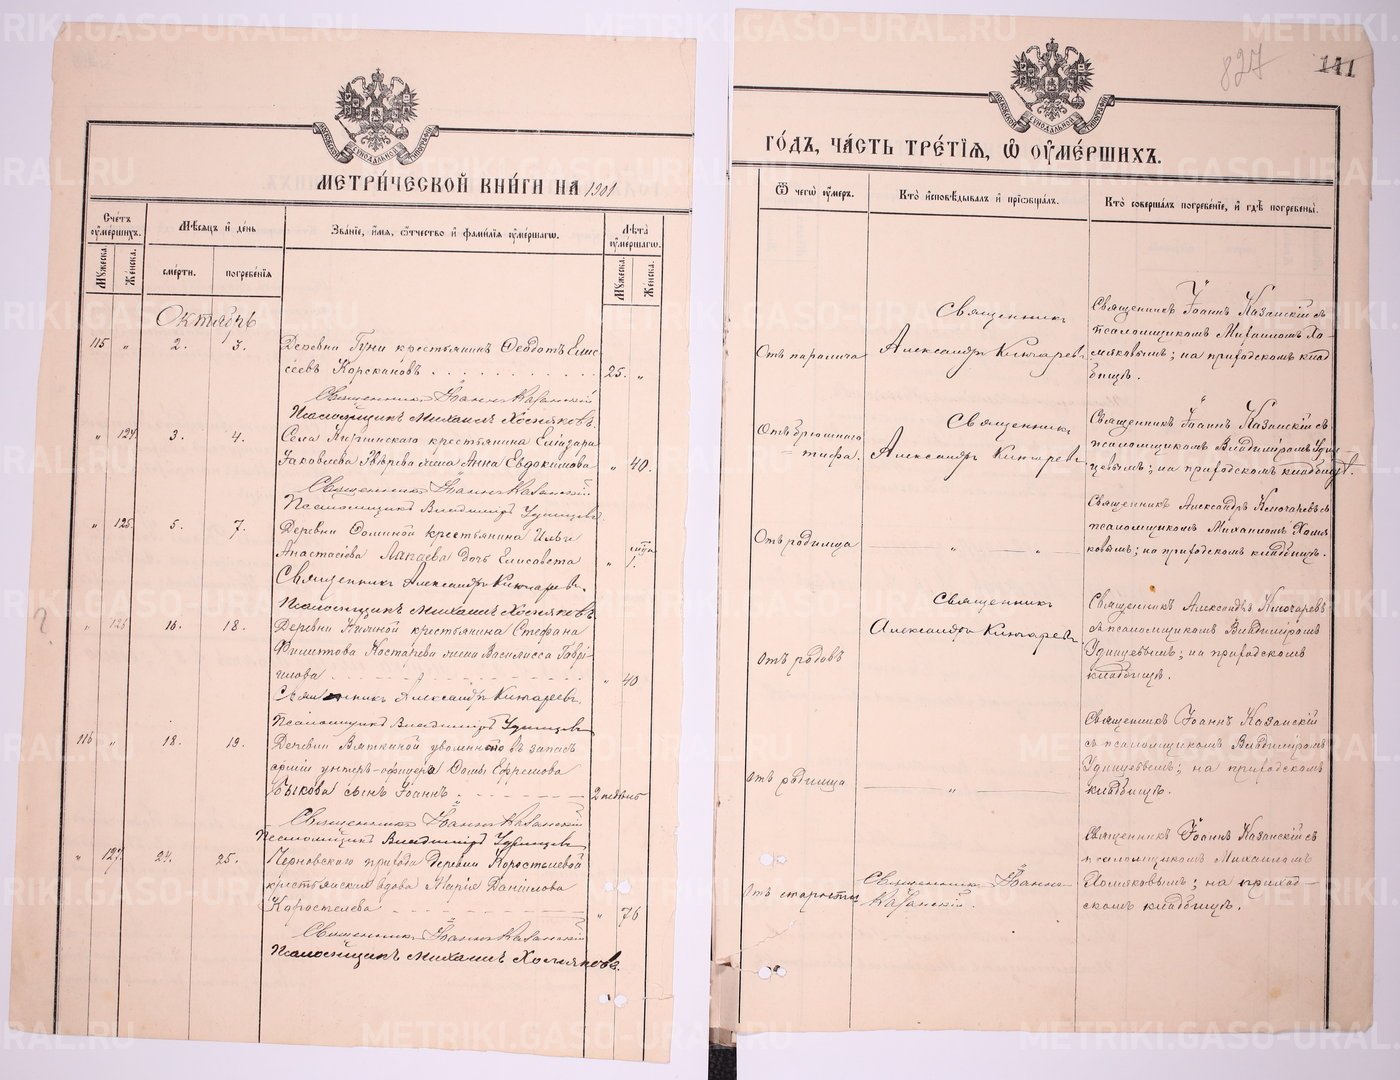 МЕТРИ́ЧЕСКОЙ КНИ́ГИ НА 1901
Счетъ ᲂумершихъ.
Мужеска.
Женска.
Мѣсяцъ и день
смерти.
погребенія
Званіе, имя, отчество и фамилія ᲂумершагѡ.
Лѣта ᲂумершагѡ.
Мужеска.
Женска.
Октябрь
115 " 2. 3. Деревни Гуни крестьянинъ Ѳеодотъ Елис
сеевъ Корскановъ 25. "
Священникъ Іоаннъ Казанскій
Псаломщикъ Михаилъ Хомяковъ.
" 124. 3. 4. Села крестьянина Еліазара
Іаковлева Звѣрева жена Анна Евдокимова " 40.
Священникъ Іоаннъ Казанскій
Псаломщикъ Владиміръ Удинцевъ
" 125. 5. 7. Деревни крестьянина Ильи
Анастасіева дочь Елисавета "
Священникъ Александръ Ключаревъ.
Псаломщикъ Михаилъ Хомяковъ
" 126. 16. 18. Деревни крестьянина Стефана
Филиппова Костарева жена Василисса Гаврі-
илова " 40
Священникъ Александръ Ключаревъ.
Псаломщикъ Владиміръ Удинцевъ
116 " 18. 19. Деревни Вяткиной уволеннаго въ запасъ
арміи унтеръ-офицера Ѳомы Ефремова
Быкова сынъ Іоаннъ 2 недѣль
Священникъ Іоаннъ Казанскій
Псаломщикъ Владиміръ Удинцевъ
" 127. 24. 25. Черновскаго прихода деревни Коростелевой
крестьянская вдова Марія Даніилова
Коростелева " 76
Священникъ Іоаннъ Казанскій
Псаломщикъ Михаилъ Хомяковъ.
827
141
ГО́ДЪ, ЧА́СТЬ ТРЕ́ТІЯ, Ѡ ОУМЕ́РШИХЪ.
Ѿ чегѡ ᲂумеръ.
Кто исповѣдывалъ и пріѡбщалъ.
Кто совершалъ погребеніе, и гдѣ погребены.
Отъ паралича
Священникъ
Александръ Ключаревъ
Священникъ Іоаннъ Казанскій съ
псаломщикомъ Михаиломъ Хо-
мяковымъ; на приходскомъ клад-
бищѣ.
Отъ брюшного
тифа.
Священникъ
Александръ Ключаревъ
Священникъ Іоаннъ Казанскій съ
псаломщикомъ Владиміромъ Удин-
цевымъ; на приходскомъ кладбищѣ.
Отъ родимца
" — "
Священникъ Александръ Ключаревъ съ
псаломщикомъ Михаиломъ Хомя
ковымъ; на приходскомъ кладбищѣ.
Отъ родовъ
Священникъ
Александръ Ключаревъ.
Священникъ Александръ Ключаревъ
съ псаломщикомъ Владиміромъ
Удинцевымъ; на приходскомъ
кладбищѣ.
Отъ родимца
— " —
Священникъ Іоаннъ Казанскій
съ псаломщикомъ Владиміромъ
Удинцевымъ; на приходскомъ
кладбищѣ.
Отъ старости
Священникъ Іоаннъ
Казанскій.
Священникъ Іоаннъ Казанскій съ
псаломщикомъ Михаиломъ
Хомяковымъ; на приход-
скомъ кладбищѣ.
METRIKI.GASO-URAL.RU